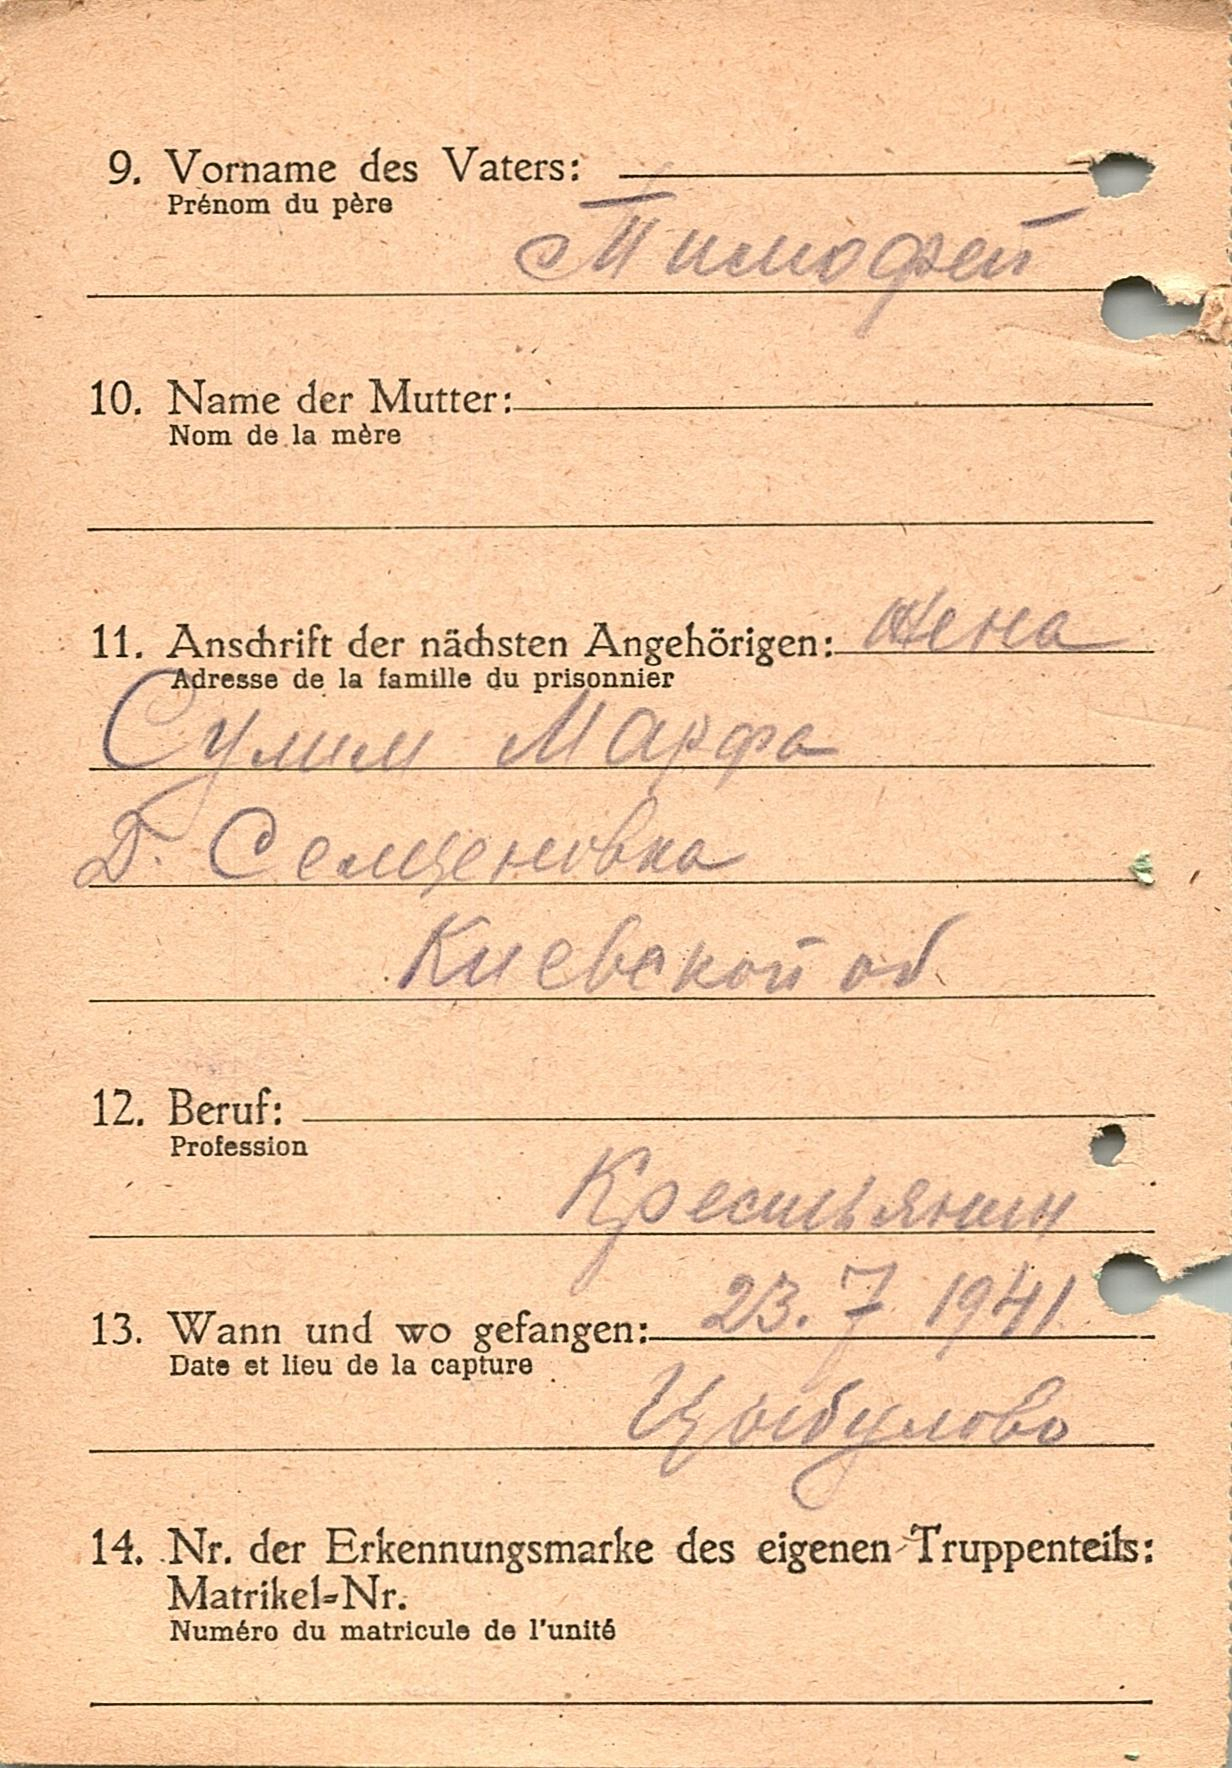 9. Vorname des Vaters:
Prénom du père
Тимофей
10. Name der Mutter:
Nom de la mère
11. Anschrift der nächsten Angehörigen: Жена
Adresse de la famille du prisonnier
Сулим Марфа
Д. Семценовка
Киевской об
12. Beruf:
Profession
Крестьянин
13. Wann und wo gefangen: 23. 7 1941
Date et lieu de la capture
Цыбулово
14. Nr. der Erkennungsmarke des eigenen Truppenteils:
Matrikel-Nr.
Numéro du matricule de l'unité